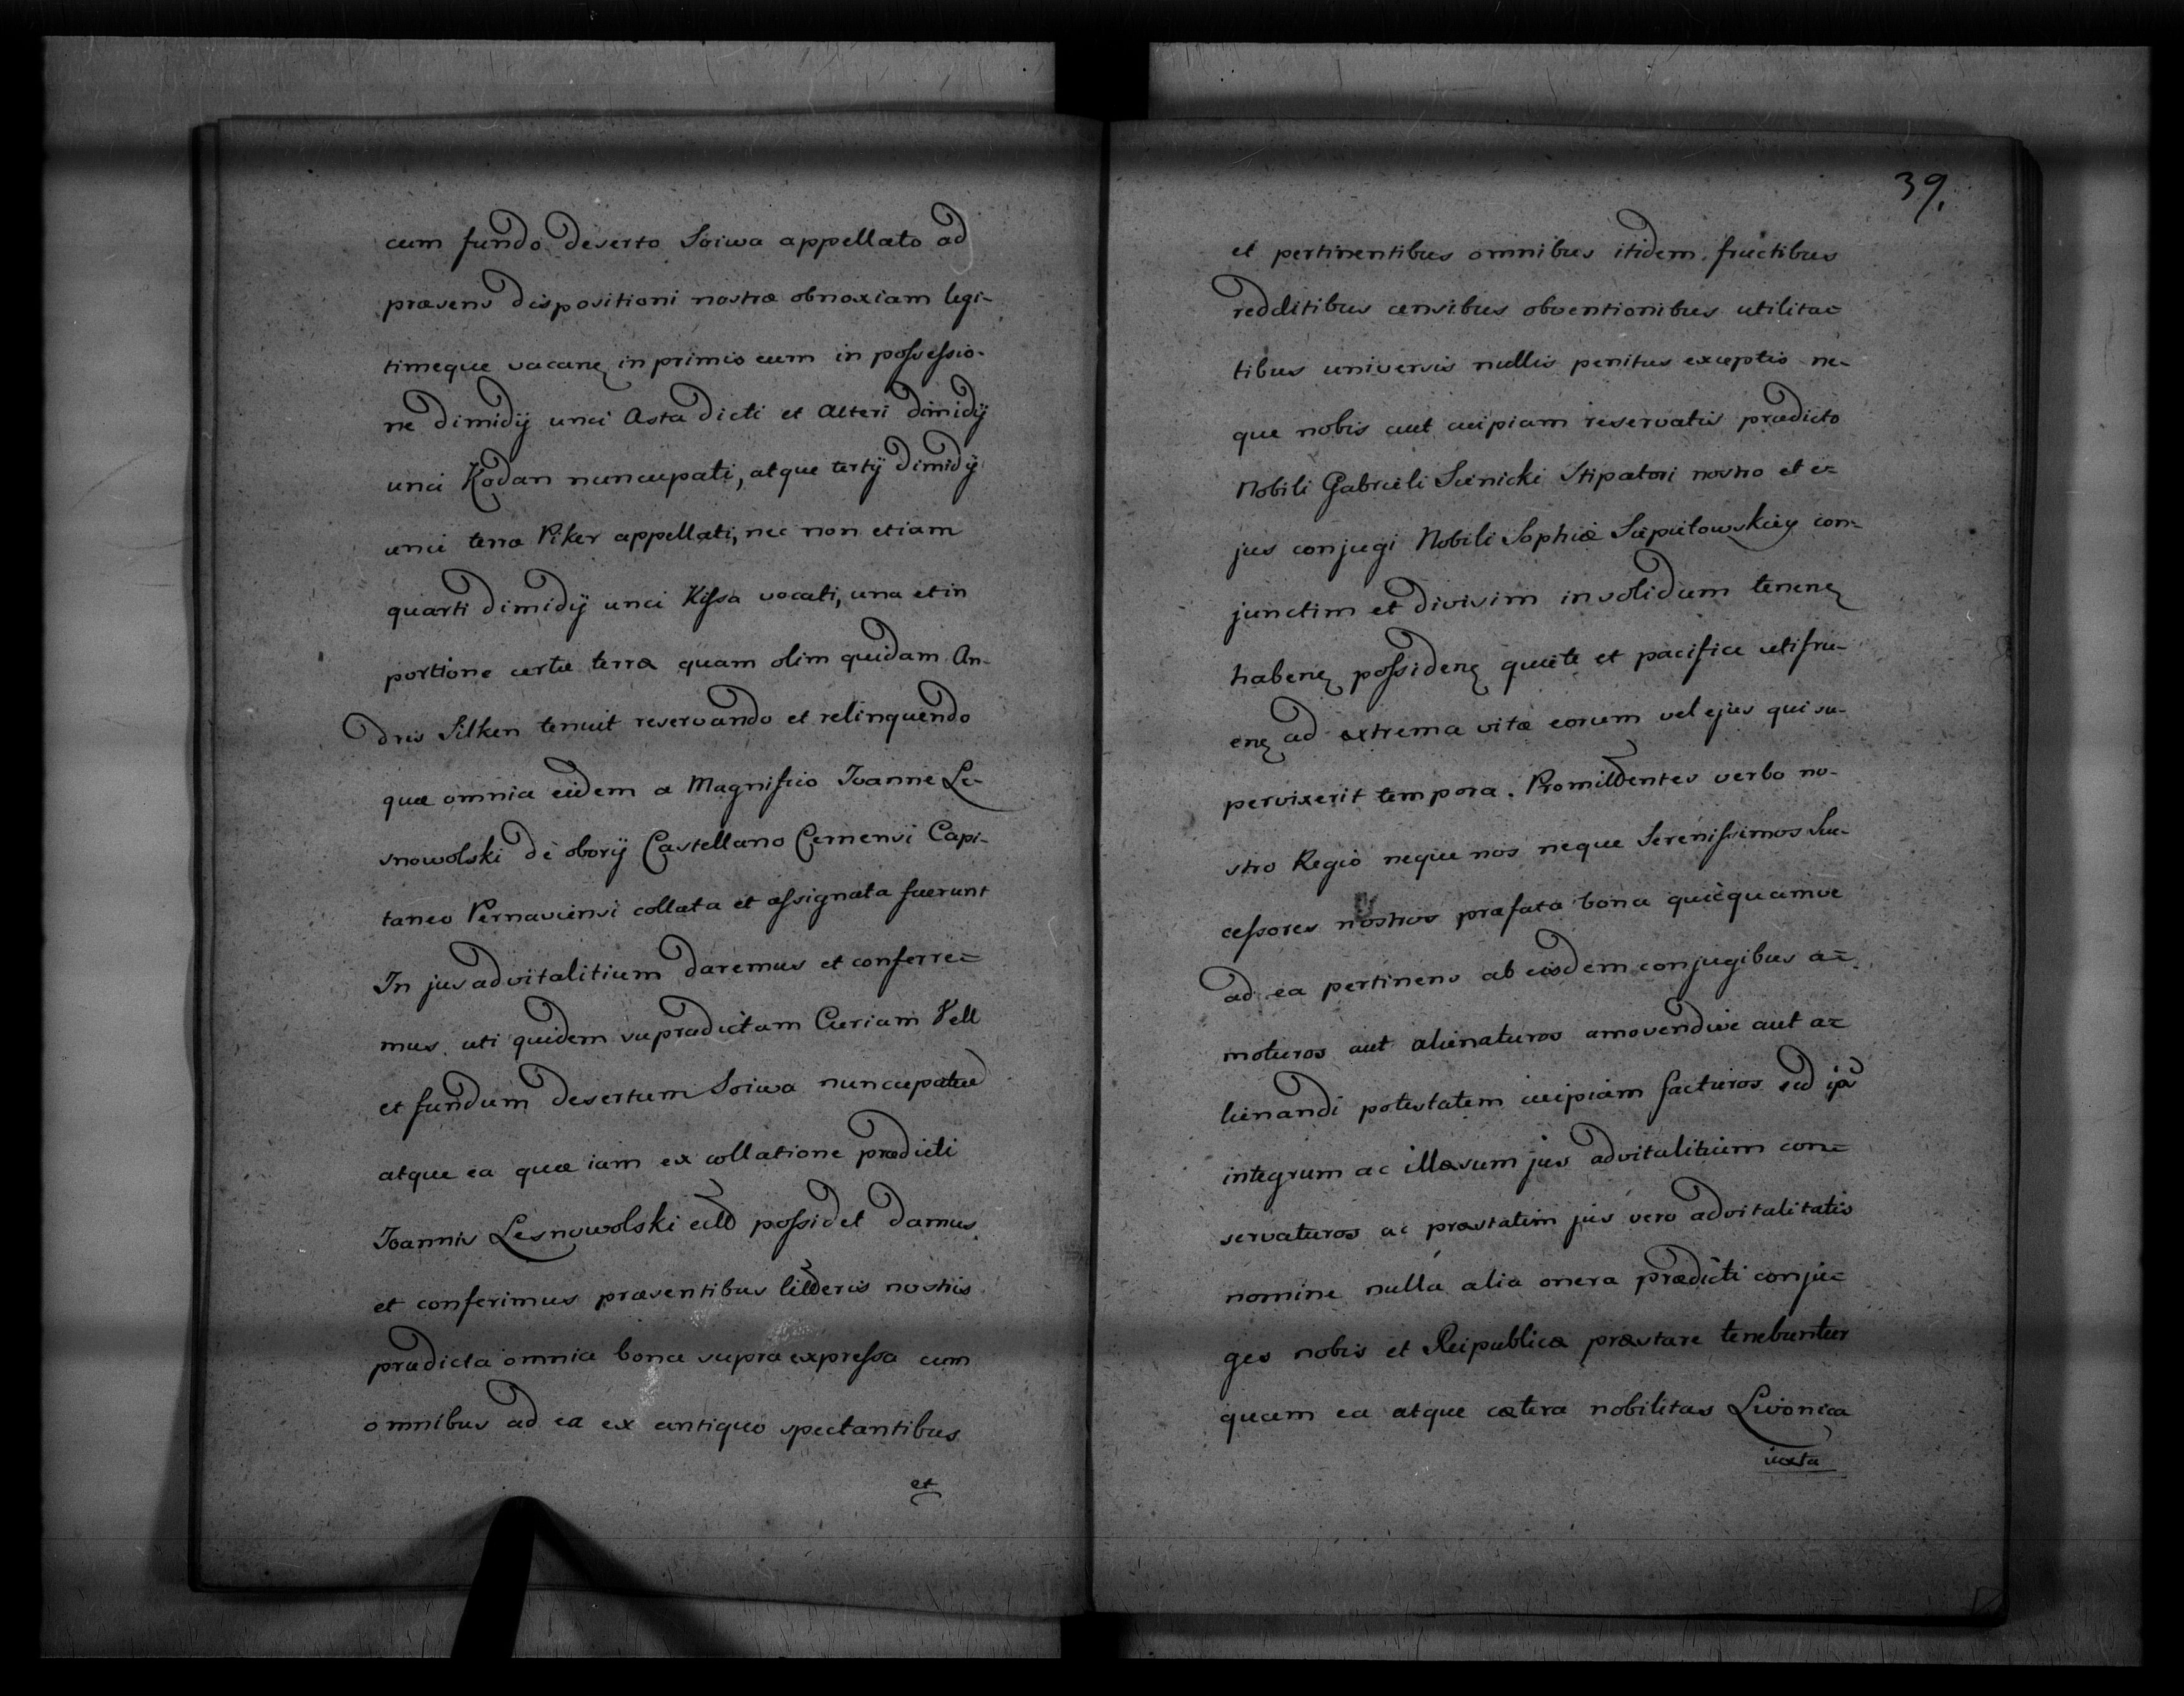 cum fundo deserto Soiwa appellato ad
præsens dispositioni nostræ obnoxiam legi-
timeque vacanꝫ in primis eum in possessio-
ne dimidÿ unci Asta dicti et Alteri dimidÿ
unci Kodan nuncupati, atque tertÿ dimidÿ
unci terræ Piker appellati, nec non etiam
quarti dimidÿ unci Kissa vocati, una et in
portione certæ terræ quam olim quidam An-
dris Silken tenuit reservando et relinquendo
quæ omnia eidem a Magnifico Joanne Le-
snowolski de oborÿ Castellano Cernensi Capi-
taneo Pernaviensi collata et assignata fuerunt
In jus advitalitium daremus et conferre=
mus. uti quidem supradictam Curiam Vell
et fundum desertum Soiwa nuncupatu
atque ea quæ iam ex collatione prædicti
Joannis Lesnowolski possidet damus
et conferimus præsentibus litteris nostris
prædicta omnia bona supra expressa cum
omnibus ad ea ex antiquo spectantibus
et
39.
et pertinentibus omnibus itidem fructibus
redditibus censibus obventionibus utilita=
tibus universis nullis penitus exceptis ne-
que nobis aut cuipiam reservatis prædicto
Nobili Gabrieli Sienicki Stipatori nostro et e=
jus conjugi Nobili Sophiæ Sieputowskiey con=
junctim et divisim in solidum tenenꝫ
habenꝫ possidenꝫ quiete et pacifice utifru-
enꝫ ad extrema vitæ eorum vel ejus qui su-
pervixerit tempora. Promittentes verbo no-
stro Regio neque nos neque Serenissimos Suc-
cessores nostros præfata bona quicquamve
ad ea pertinens ab eisdem conjugibus a=
moturos aut alienaturos amovendive aut a=
lienandi potestatem cuipiam facturos sed ips
integrum ac illæsum jus advitalitium con=
servaturos ac præstatim jus vero advitalitatis
nomine nulla alia onera prædicti conju=
ges nobis et Reipublicæ præstare tenebuntur
quam ea atque cætera nobilitas Livonica
iuxta